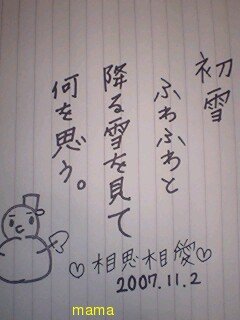 初雪
ふわふわと
降る雪を見て
何を思う。
♡相思相愛♡
2007.11.2
mama